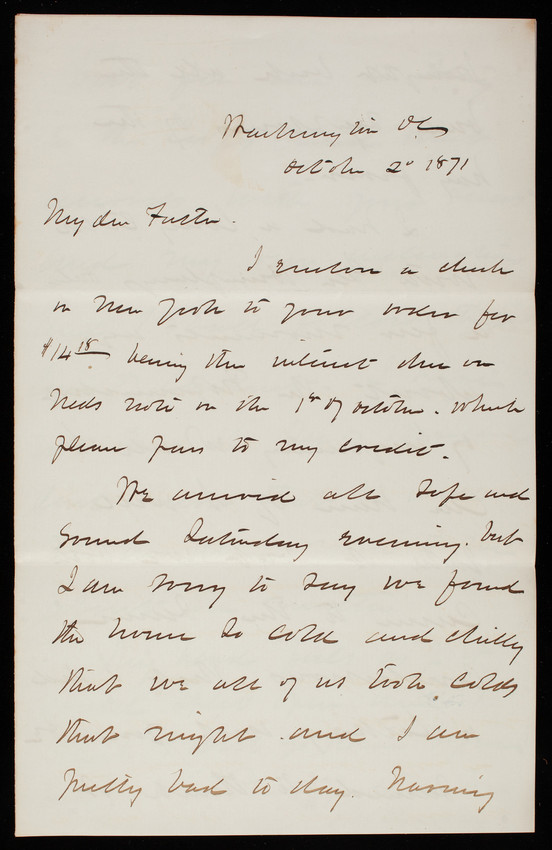 Washington DC
October 2d 1871
My dear Father.
I enclose a check
on New York to your order for
$14 18 being the interest due on
Neds note on the 1st of October. which
please pass to my credit.
We arrived all safe and
sound Saturday evening. but
I am sorry to say we found
the house so cold and chilly
that we all of us took colds
that night. and I am
pretty bad to day. Having